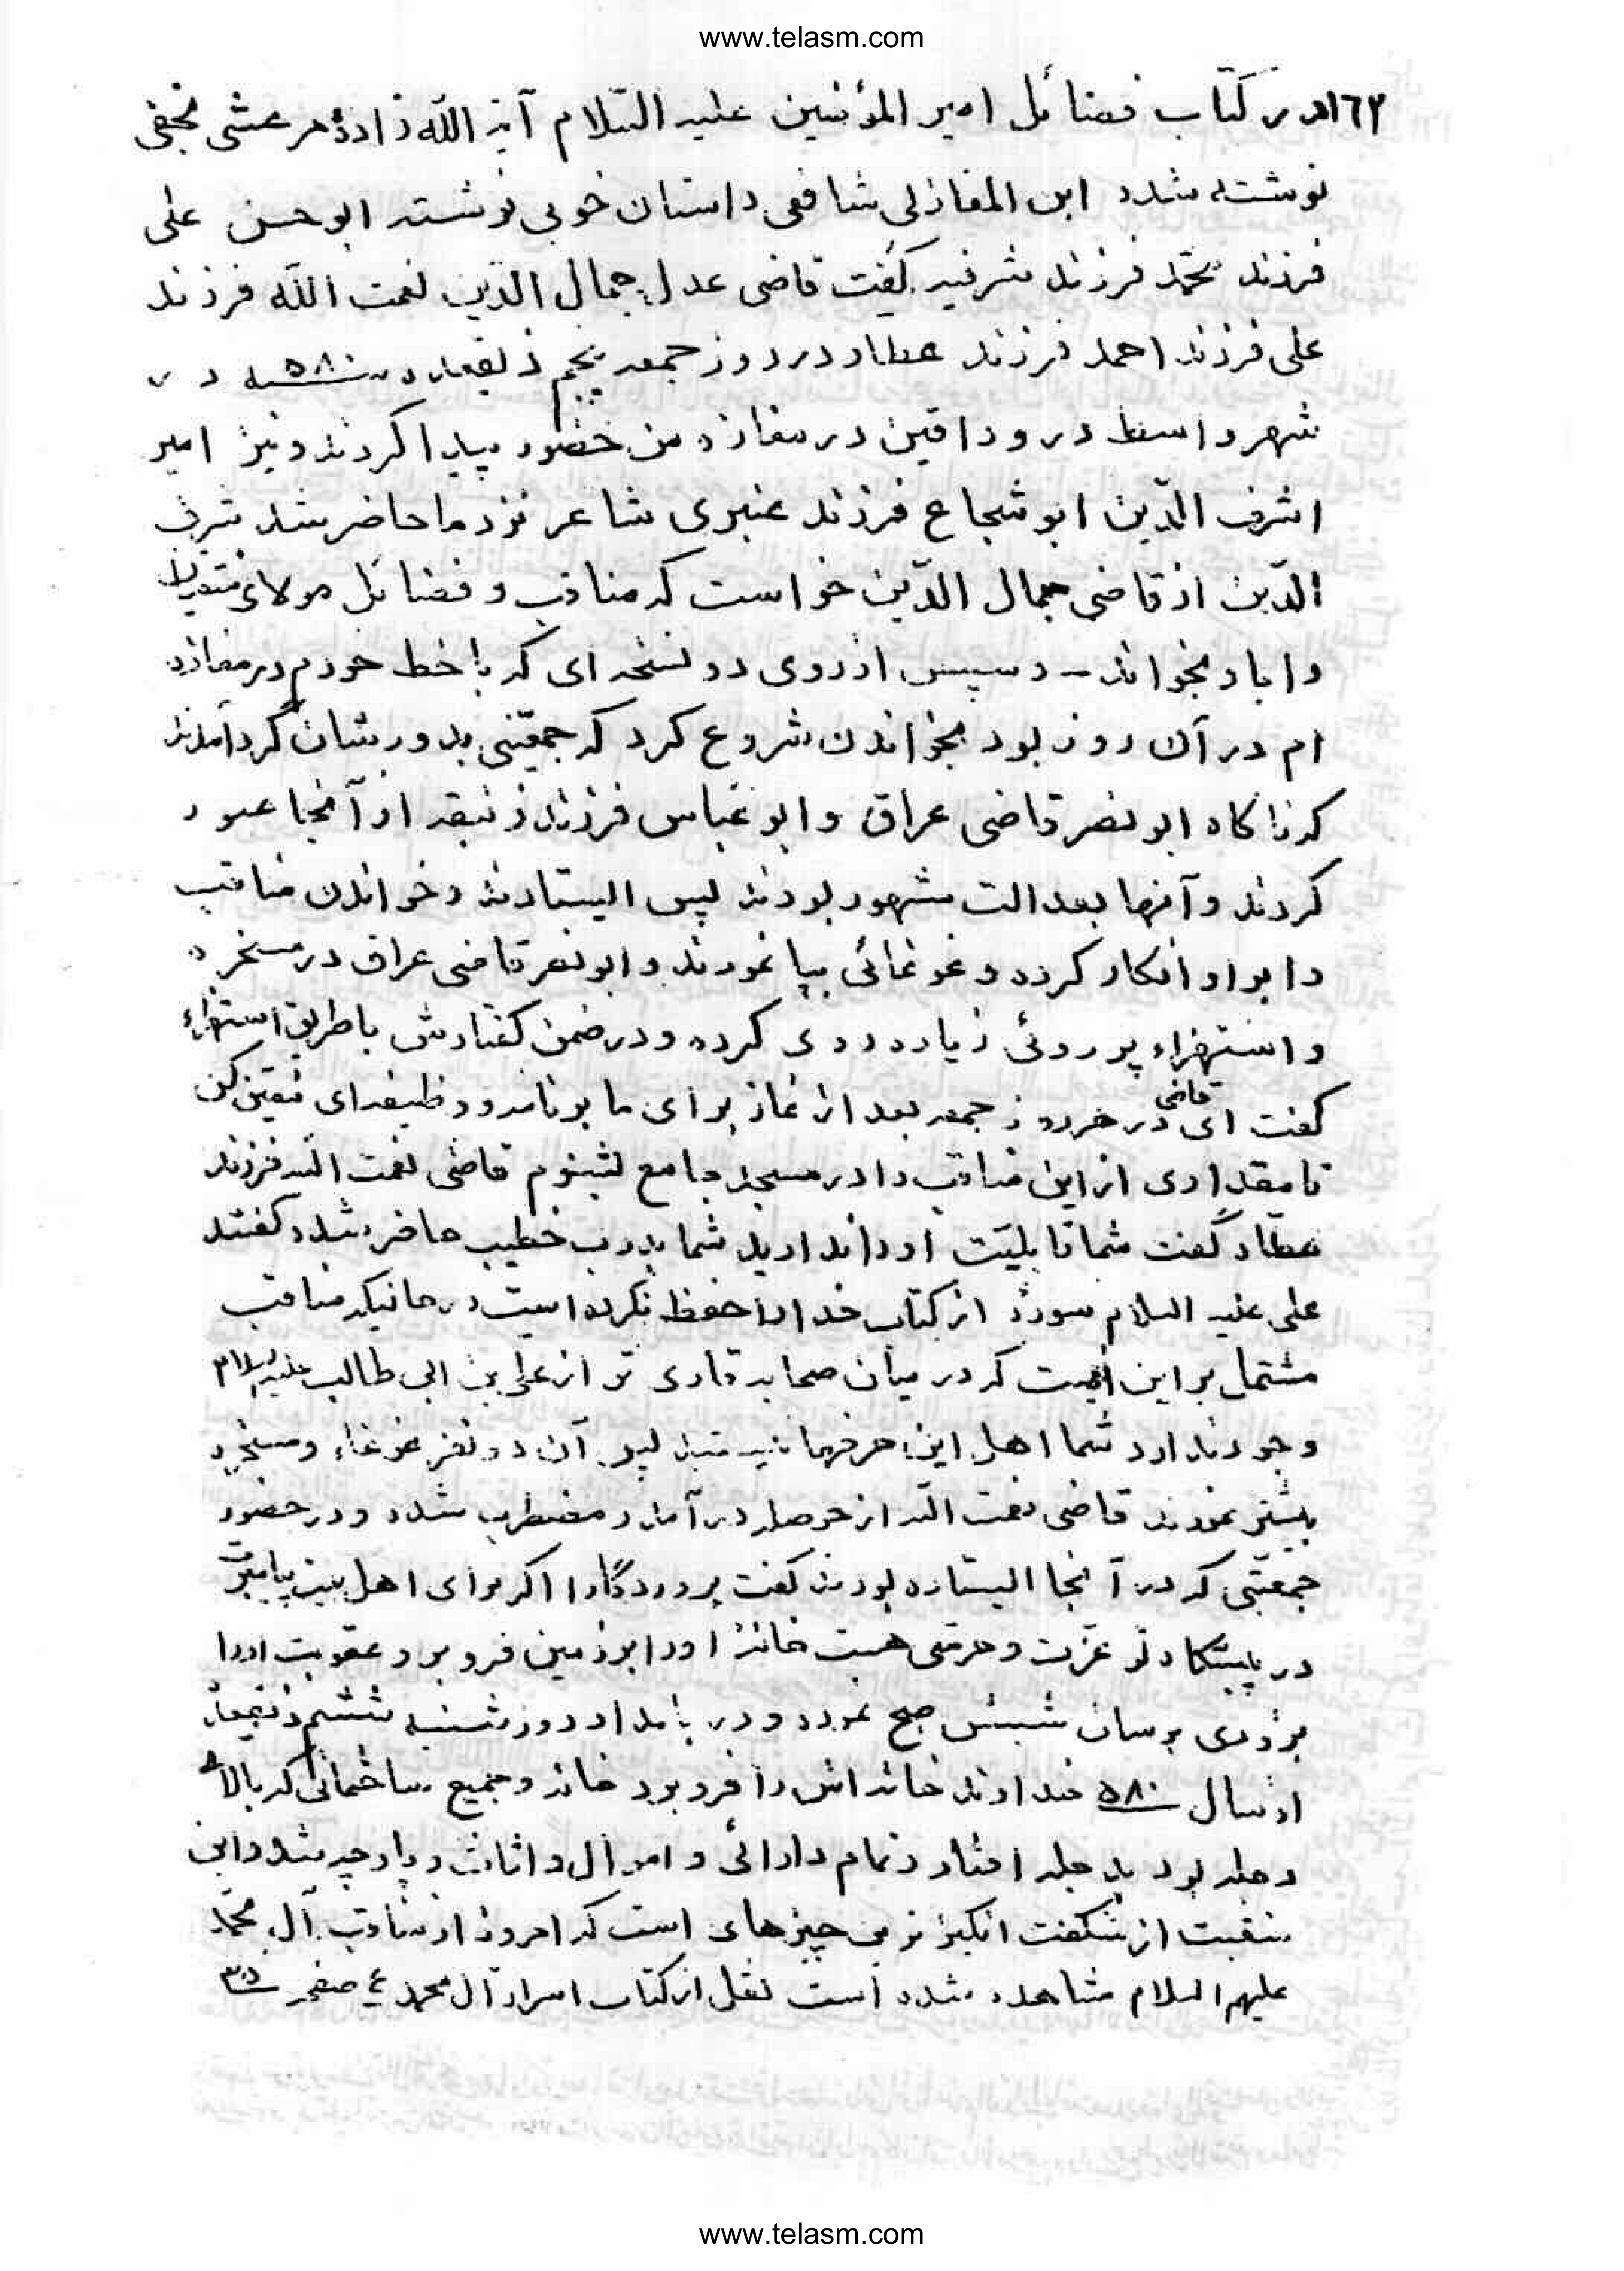 www.telasm.com
١٦٢ در کتاب فضائل امیر المؤمنین علیه السّلام آیة اللّه زادهٔ مرعشی نجفی
نوشته شده ابن المغازلی شافعی داستان خوبی نوشته ابو حسن علی
فرزند محمّد فرزند شرفیه گفت قاضی عدل جمال الدّین نعمت اللّه فرزند
علی فرزند احمد فرزند عطار در روز جمعه پنجم ذیقعده سنه ۵۸۰ در
شهر واسط در وراقین در مغازه من حضور پیدا کردند و نیز امیر
اشرف الدّین ابو شجاع فرزند عنبری شاعر نزد ما حاضر شد شرف
الدّین از قاضی جمال الدّین خواست که مناقب و فضائل مولای متقیان
را باو بخواند ـ و سپس از روی دو نسخه ای که با خط خودم در مغازه
ام در آن روز بود بخواندن شروع کرد که جمعیّتی بدورشان گرد آمدند
که ناگاه ابو نصر قاضی عراق و ابو عباس فرزند زنبقه از آنجا عبور
کردند و آنها بعدالت مشهور بودند پس ایستادند و خواندن مناقب
را بر او انکار کرده و غوغائی بپا نمودند و ابو نصر قاضی عراق در مسخره
و استهزاء پر روئی زیاده روی کرده و در ضمن گفتارش با طریق استهزاء
گفت ای قاضی در هر روز جمعه بعد از نماز برای ما برنامه و وظیفه ای تعیین کن
تا مقداری از این مناقب را در مسجد جامع بشنوم قاضی نعمت اللّه فرزند
عطار گفت شما قابلیّت او را ندارید شما بدرب خطیب حاضر شده گفتند
علی علیه السلام سورهٔ از کتاب خدا را حفظ نکرده است در حالیکه مناقب
مشتمل بر این است که در میان صحابه قاری تر از علی بن ابی طالب علیه السلام
وجود ندارد شما اهل این حرفها نیستید پس آن دو نفر غوغاء و مسخره
بیشتر نمودند قاضی نعمت اللّه از حوصله در آمد و مضطرب شده و در حضور
جمعیّتی که در آنجا ایستاده بودند گفت پروردگارا اگر برای اهل بیت پیامبرت
در پیشگاه تو عزّت و حرمتی هست خانهٔ او را بزمین فرو بر و عقوبت او را
بزودی برسان شبش صبح نموده و در بامداد روز شنبه ششم ذیقعده
از سال ۵۸۰ خداوند خانه اش را فرو برد خانه و جمیع ساختمانی که بالای
دجله بود بدجله افتاد و تمام دارائی و اموال و اثاث و پارچه شد و این
منقبت از شگفت انگیز ترین چیزهای است که امروز از مناقب آل محمّد
علیهم السلام مشاهده شده است نقل از کتاب اسرار آل محمد ع صفحه ۳۵
www.telasm.com